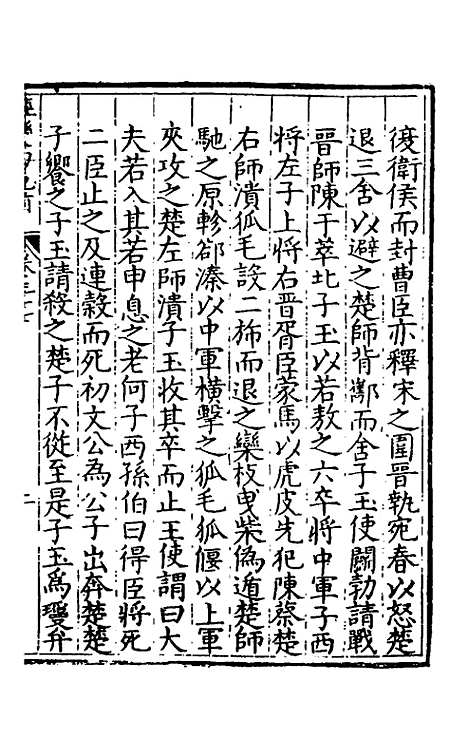 復衛侯而封曹臣亦釋宋之圍晉執宛春以怒楚
退三舍以避之楚師背酅而舍子玉使鬬勃請戰
晉師陳于莘北子玉以若敖之六卒將中軍子西
將左子上將右晉胥臣蒙馬以虎皮先犯陳蔡楚
右師潰狐毛設二斾而退之欒枝曳柴偽遁楚師
馳之原軫郤溱以中軍橫擊之狐毛狐偃以上軍
夾攻之楚左師潰子玉收其卒而止王使謂曰大
夫若入其若申息之老何子西孫伯曰得臣將死
二臣止之及連穀而死初文公為公子出奔楚楚
子饗之子玉請殺之楚子不從至是子玉為瓊弁